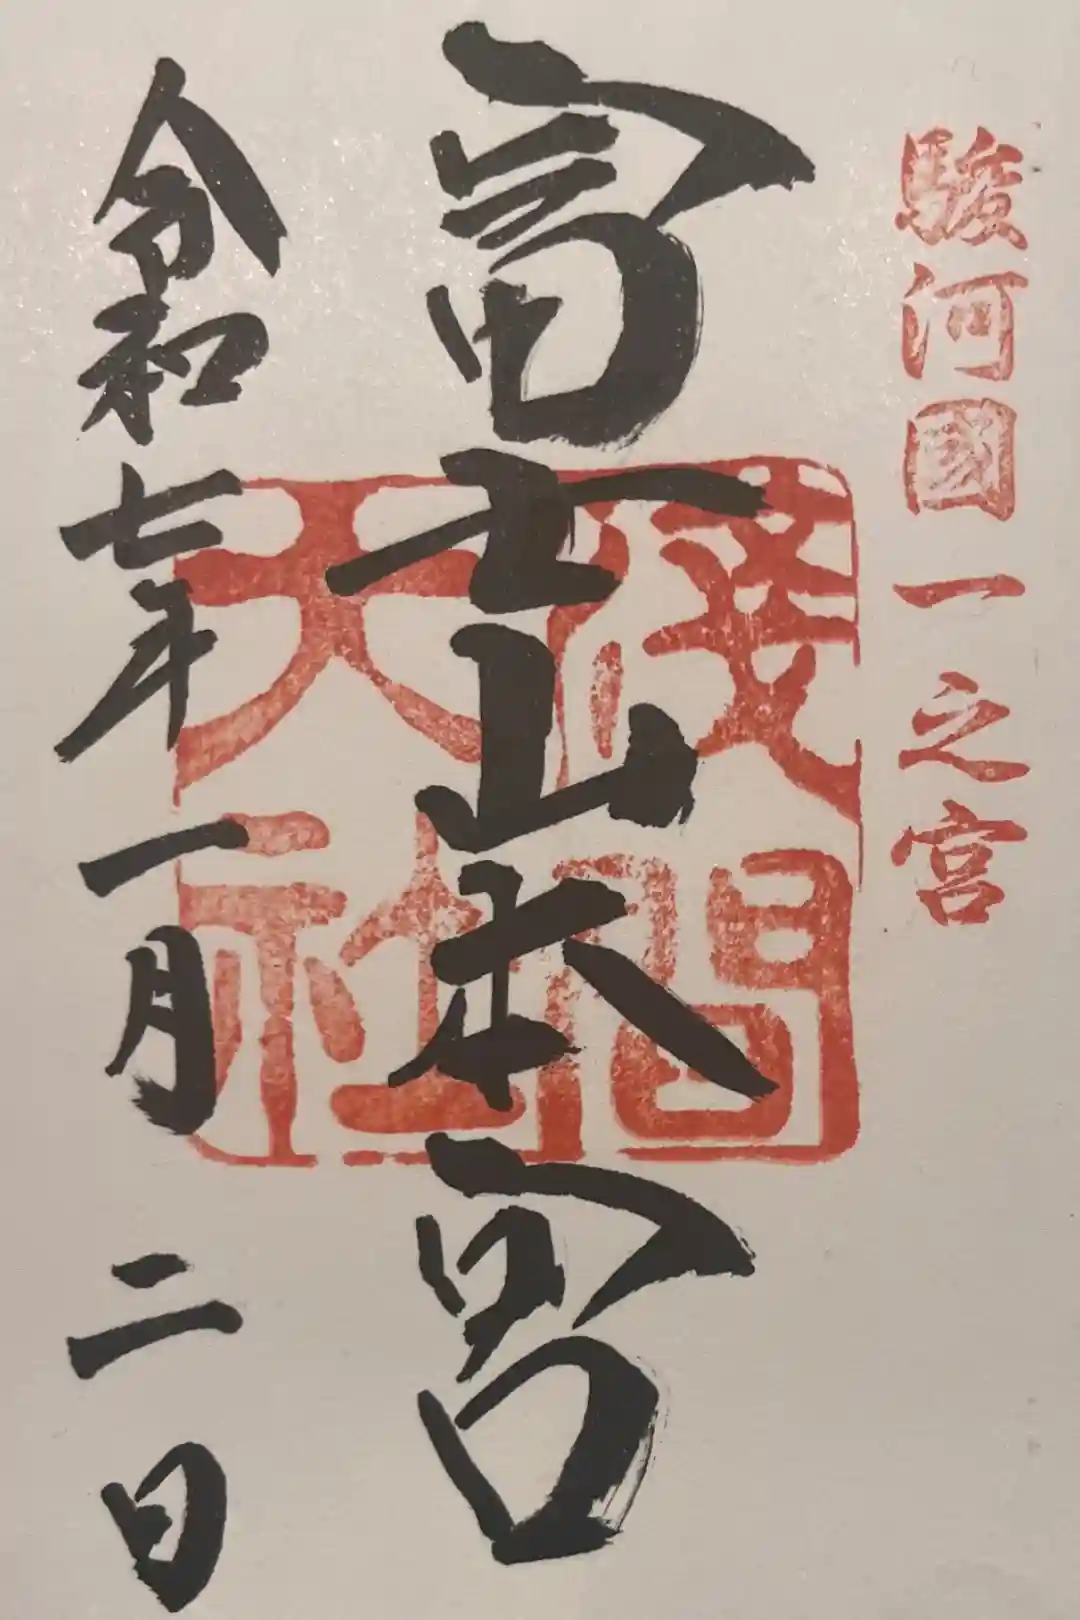 駿河國一之宮
富士山本宮
淺間大社
令和七年一月二日